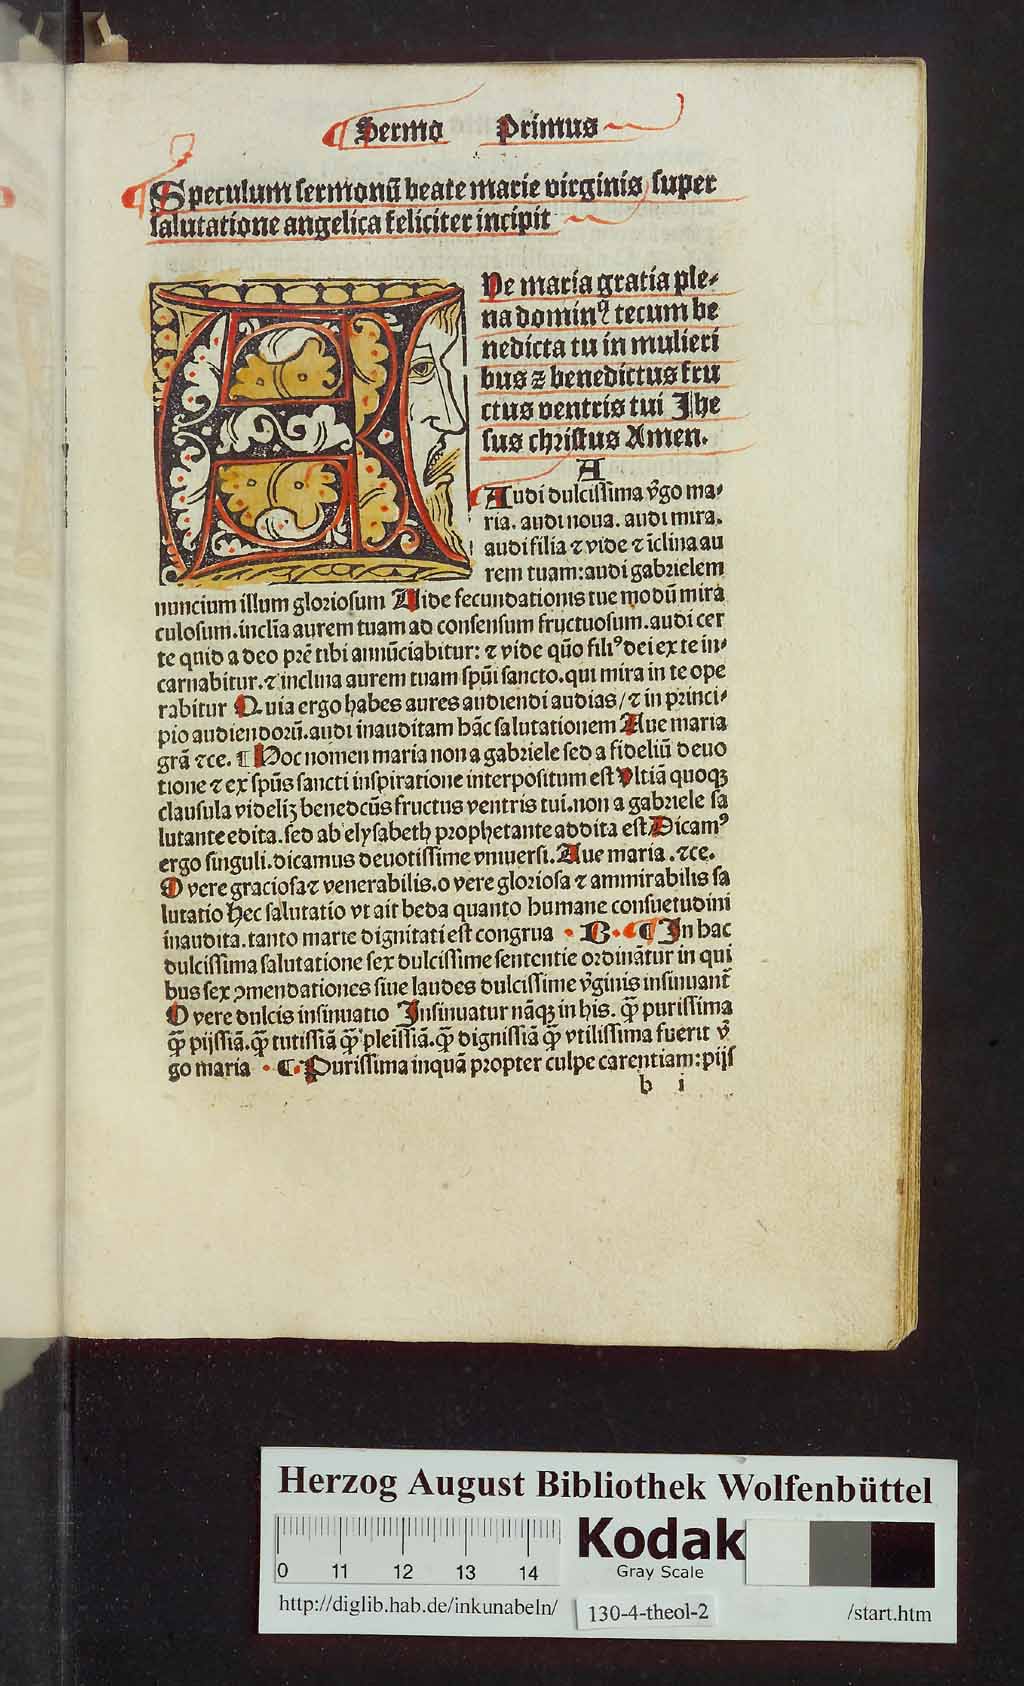 Sermo Primus
Speculum sermonū beate marie virginis super
salutatione angelica feliciter incipit
Ue maria gratia ple⸗
na dominꝰ tecum be
nedicta tu in mulieri
bus ⁊ benedictus fru
ctus ventris tui Ihe
sus christus Amen.
A
Audi dulcissima v̄go ma⸗
ria. audi noua. audi mira.
audi filia ⁊ vide ⁊ īclina au
rem tuam: audi gabrielem
nuncium illum gloriosum Uide fecundationis tue modū mira
culosum. inclīa aurem tuam ad consensum fructuosum. audi cer
te quid a deo pr̄e tibi annūciabitur: ⁊ vide quō filiꝰ dei ex te in⸗
carnabitur. ⁊ inclina aurem tuam spūi sancto. qui mira in te ope
rabitur Quia ergo habes aures audiendi audias / ⁊ in princi⸗
pio audiendorū. audi inauditam hāc salutationem Aue maria
grā ⁊ce. ¶ Hoc nomen maria non a gabriele sed a fideliū deuo
tione ⁊ ex spūs sancti inspiratione interpositum est Vltīā quoqꝫ
clausula videliꝫ benedc̄us fructus ventris tui. non a gabriele sa
lutante edita. sed ab elysabeth prophetante addita est Dicamꝰ
ergo singuli. dicamus deuotissime vniuersi. Aue maria .⁊ce.
O vere graciosa ⁊ venerabilis. o vere gloriosa ⁊ ammirabilis sa
lutatio Hec salutatio vt ait beda quanto humane consuetudini
inaudita. tanto marie dignitati est congrua · B · ¶ In hac
dulcissima salutatione sex dulcissime sententie ordinātur in qui
bus sex ꝯmendationes siue laudes dulcissime v̄ginis insinuant̄
O vere dulcis insinuatio Insinuatur nāqꝫ in his. qꝫ̄ purissima
qꝫ̄ pijssīā. qꝫ̄ tutissīā qꝫ̄ pleissīā. qꝫ̄ dignissīā qꝫ̄ vtilissima fuerit v̄
go maria · C · Purissima inquā propter culpe carentiam: pijs
b i
Herzog August Bibliothek Wolfenbüttel
0 11 12 13 14
Kodak
Gray Scale
http://diglib.hab.de/inkunabeln/ 130-4-theol-2 /start.htm